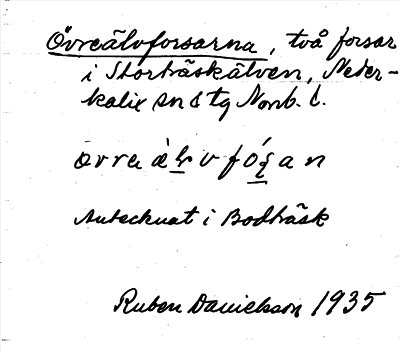 Övreälvforsarna, två forsar
i Storträskälven, Neder-
kalix sn & tg Norrb. l.
Antecknat i Bodträsk
Ruben Danielsson 1935